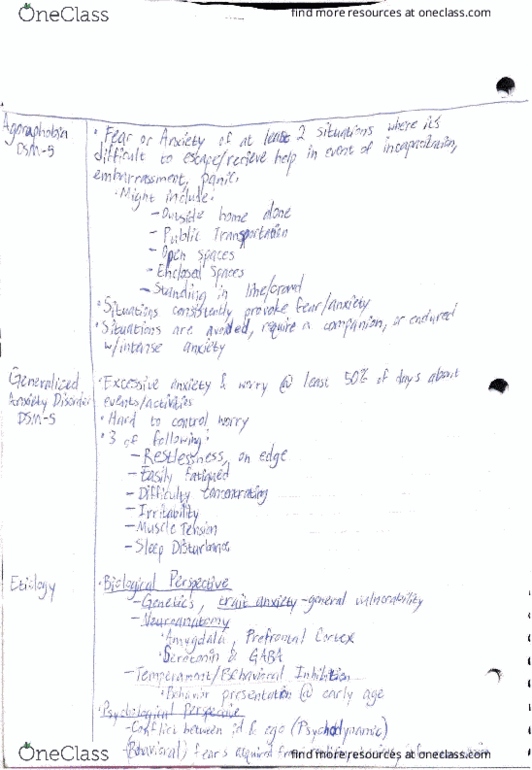 OneClass
find more resources at oneclass.com
Agoraphobia
DSM-5
• Fear or Anxiety of at least 2 situations where its
difficult to escape/recieve help in event of incapacitation,
embarrassment, panic.
• Might include:
- Outside home alone
- Public Transportation
- Open Spaces
- Enclosed Spaces
- Standing in line/crowd
• Situations consistently provoke fear/anxiety
• Situations are avoided, require a companion, or endured
w/intense anxiety
Generalized
Anxiety Disorder
DSM-5
• Excessive anxiety & worry @ least 50% of days about
events/activities
• Hard to control worry
• 3 of following:
- Restlessness, on edge
- Easily fatigued
- Difficulty concentrating
- Irritability
- Muscle Tension
- Sleep Disturbance
Etiology
• Biological Perspective
- Genetics, trait anxiety - general vulnerability
- Neuroanatomy
• Amygdala, Prefrontal Cortex
• Serotonin & GABA
- Temperament/Behavioral Inhibition
• Behavior presentation @ early age
• Psychological Perspective
- Conflict between id & ego (Psychodynamic)
- (Behavioral) fears acquired
OneClass
find more resources at oneclass.com